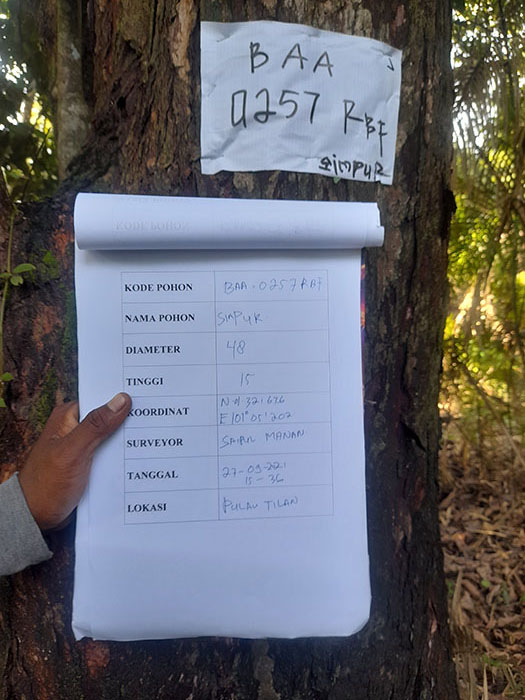 BAA
0257 RBF
SimPUR
KODE POHON BAA - 0257 RBF
NAMA POHON SIMPUR.
DIAMETER 48
TINGGI 15
KOORDINAT
E 101° 05' 202
SURVEYOR SAIPUL MANAN
TANGGAL 27-09-22;
15-36
LOKASI PULAU TILAN